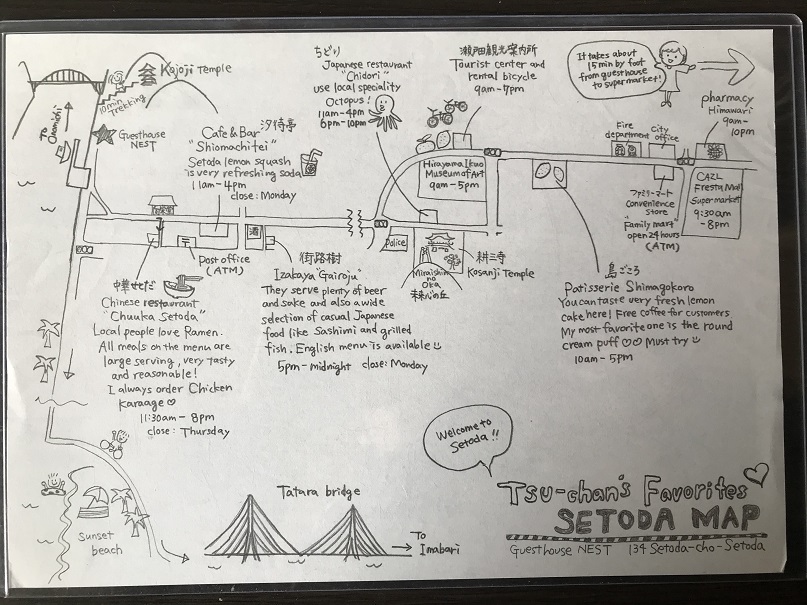 Kojoji Temple
10 min
trekking
To Onomichi
Guesthouse
NEST
Cafe & Bar 汐待亭
"Shiomachitei"
Setoda lemon squash
is very refreshing soda
11am-4pm
close: Monday
ちどり
Japanese restaurant
"Chidori"
use local speciality
Octopus!
11am-4pm
6pm-10pm
瀬戸田観光案内所
Tourist center and
rental bicycle
9am-7pm
It takes about
15min by foot
from guesthouse
to supermarket!
pharmacy
Himawari
9am-
10pm
Fire
department
City
office
Hirayama Ikuo
Museum of Art
9am-5pm
CAZL
Fresta Mall
Supermarket
9:30am
-8pm
ファミリーマート
convenience
store
"Family mart"
open 24 hours
(ATM)
Post office
(ATM)
酒
Police
Miraishin
no
Oka
未来心の丘
耕三寺
Kosanji Temple
中華せとだ
Chinese restaurant
"Chuuka Setoda"
Local people love Ramen.
All meals on the menu are
large serving, very tasty
and reasonable!
I always order Chicken
Karaage♡
11:30am-8pm
close: Thursday
街路樹
Izakaya "Gairoju"
They serve plenty of beer
and sake and also a wide
selection of casual Japanese
food like Sashimi and grilled
fish. English menu is available
5pm-midnight close: Monday
島ごころ
Patisserie Shimagokoro
You can taste very fresh lemon
cake here! Free coffee for customers
My most favorite one is the round
cream puff ♡♡ Must try
10am-5pm
Welcome to
Setoda!!
Sunset
beach
Tatara bridge
To
Imabari
Tsu-chan's Favorites
SETODA MAP
Guesthouse NEST 134 Setoda-cho-Setoda